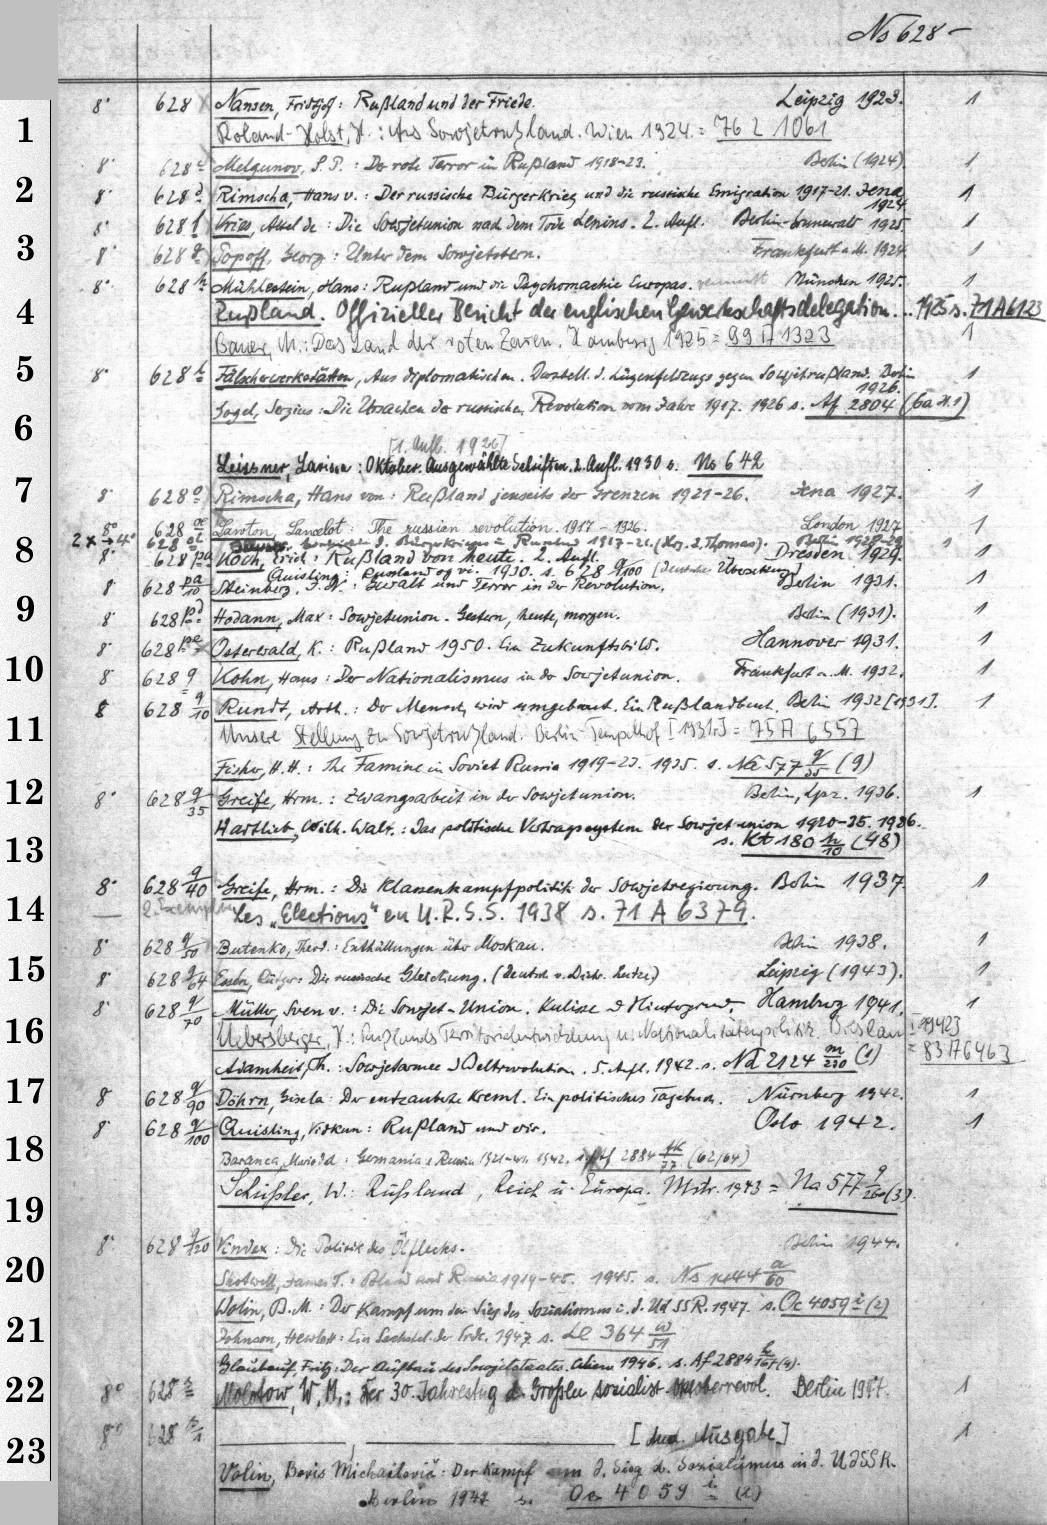 Ns 628 –
1
8° 628 Nansen, Fridtjof: Rußland und der Friede. Leipzig 1923. 1
Roland-Holst, H.: Aus Sowjetrußland. Wien 1924. = 76 L 1061
2
8° 628 Melgunov, S. P.: Der rote Terror in Rußland 1918-23. Berlin (1924). 1
8° 628 d Rimscha, Hans v.: Der russische Bürgerkrieg und die russische Emigration 1917-21. Jena 1924 1
3
8° 628 f Vries, Axel de: Die Sowjetunion nach dem Tode Lenins. 2. Aufl. Berlin-Grunewald 1925. 1
8° 628 g Popoff, Georg: Unter dem Sowjetstern. Frankfurt a. M. 1924. 1
8° 628 h Mühlestein, Hans: Rußland und die Psychomachie Europas. München 1925. 1
4
Rußland. Offizieller Bericht der englischen Gewerkschaftsdelegation. . . 1925 s. 71 A 6123
Bauer, M.: Das Land der roten Zaren. Hamburg 1925 = 99 A 1323 1
5
8° 628 Fälscherwerkstätten, Aus diplomatischen. Darstell. d. Lügenfeldzugs gegen Sowjetrußland. Berlin 1926. 1
Gogel, Sergius: Die Ursachen der russischen Revolution vom Jahre 1917. 1926 s. Af 2804 (6a H. 1)
6
[1. Aufl. 1926]
Leissner, Larissa: Oktober. Ausgewählte Schriften. 2. Aufl. 1930 s. Ns 642
7
8° 628 o Rimscha, Hans von: Rußland jenseits der Grenzen 1921-26. Jena 1927. 1
8° 628 Lawton, Lancelot: The russian revolution. 1917-1926. London 1927 1
8
2 x 4° 628 d. Bürgerkrieges in Russland 1917-21. (Hrg. v. Thomas). Berlin 1928-29
8° 628 pa Koch, Erich: Rußland von heute. 2. Aufl. Dresden 1929. 1
Quisling: Russland og vi. 1930. s. 628 q/100 [deutsche Übersetzung]
8° 628 pa/10 Steinberg, J. N.: Gewalt und Terror in der Revolution. Berlin 1931. 1
9
8° 628 pd Hodann, Max: Sowjetunion. Gestern, heute, morgen. Berlin (1931). 1
8° 628 pe Osterwald, K.: Rußland 1950. Ein Zukunftsbild. Hannover 1931. 1
10
8° 628 q Kohn, Hans: Der Nationalismus in der Sowjetunion. Frankfurt a. M. 1932. 1
8° 628 q/10 Rundt, Arth.: Der Mensch wird umgebaut. Ein Rußlandbuch. Berlin 1932 [1931]. 1
11
Unsere Stellung zu Sowjetrußland. Berlin-Tempelhof [1931] = 75 A 6557
Fisher, H. H.: The Famine in Soviet Russia 1919-23. 1935. s. Na 577 q/35 (9)
12
8° 628 q/35 Greife, Hrm.: Zwangsarbeit in der Sowjetunion. Berlin, Lpz. 1936. 1
Hartlieb, Wilh. Walt.: Das politische Vertragssystem der Sowjetunion 1920-35. 1936.
13
s. Kt 180 h/10 (48)
8° 628 q/40 Greife, Hrm.: Die Klassenkampfpolitik der Sowjetregierung. Berlin 1937 1
14
— 2. Exemplar Les „Elections" en U.R.S.S. 1938 s. 71 A 6379.
8° 628 q/50 Butenko, Theod.: Enthüllungen über Moskau. Berlin 1938. 1
15
8° 628 q/64 Essén, Rütger: Die russische Gleichung. (Deutsch v. Lutze) Leipzig (1943). 1
8° 628 q/70 Müller, Sven v.: Die Sowjet-Union. Kulisse u. Hintergrund. Hamburg 1941. 1
16
Uebersberger, H.: Rußlands Territorialentwicklung u. Nationalitätenpolitik. Breslau = 83 A 6463
Adamheit, Th.: Sowjetarmee u. Weltrevolution. 5. Aufl. 1942. s. Nd 2124 m/230 (1)
17
8° 628 q/90 Döhrn, Gisela: Der entzauberte Kreml. Ein politisches Tagebuch. Nürnberg 1942. 1
8° 628 q/100 Quisling, Vidkun: Rußland und wir. Oslo 1942. 1
18
Germania e Russia 1921-41. 1942. (62/64)
Schüssler, W.: Russland, Reich u. Europa. Mstr. 1943 = Na 577 q/260 (3).
19
8° 628 q/120 Vindex: Die Politik des Ölflecks. Berlin 1944.
20
Shotwell, James T.: Poland and Russia 1919-45. 1945. s. Ns 1444 a/60
Wolin, B. M.: Der Kampf um den Sieg des Sozialismus i. d. UdSSR. 1947. s. Oc 4059 i (2)
21
Johnson, Hewlett: Ein Sechstel der Erde. 1947 s. Le 364 w/51
Glaubauf, Fritz: Der Aufbau des Sowjetstaates. Wien 1946. s. Af 2884
22
8° 628 Molotow, W. M.: Der 30. Jahrestag d. Großen sozialist. Oktoberrevol. Berlin 1947. 1
23
8° 628 ——— , ——— [And. Ausgabe] 1
Volin, Boris Michailovič: Der Kampf um d. Sieg d. Sozialismus in d. UdSSR.
Berlin 1947 s. Oc 4059 i (2)